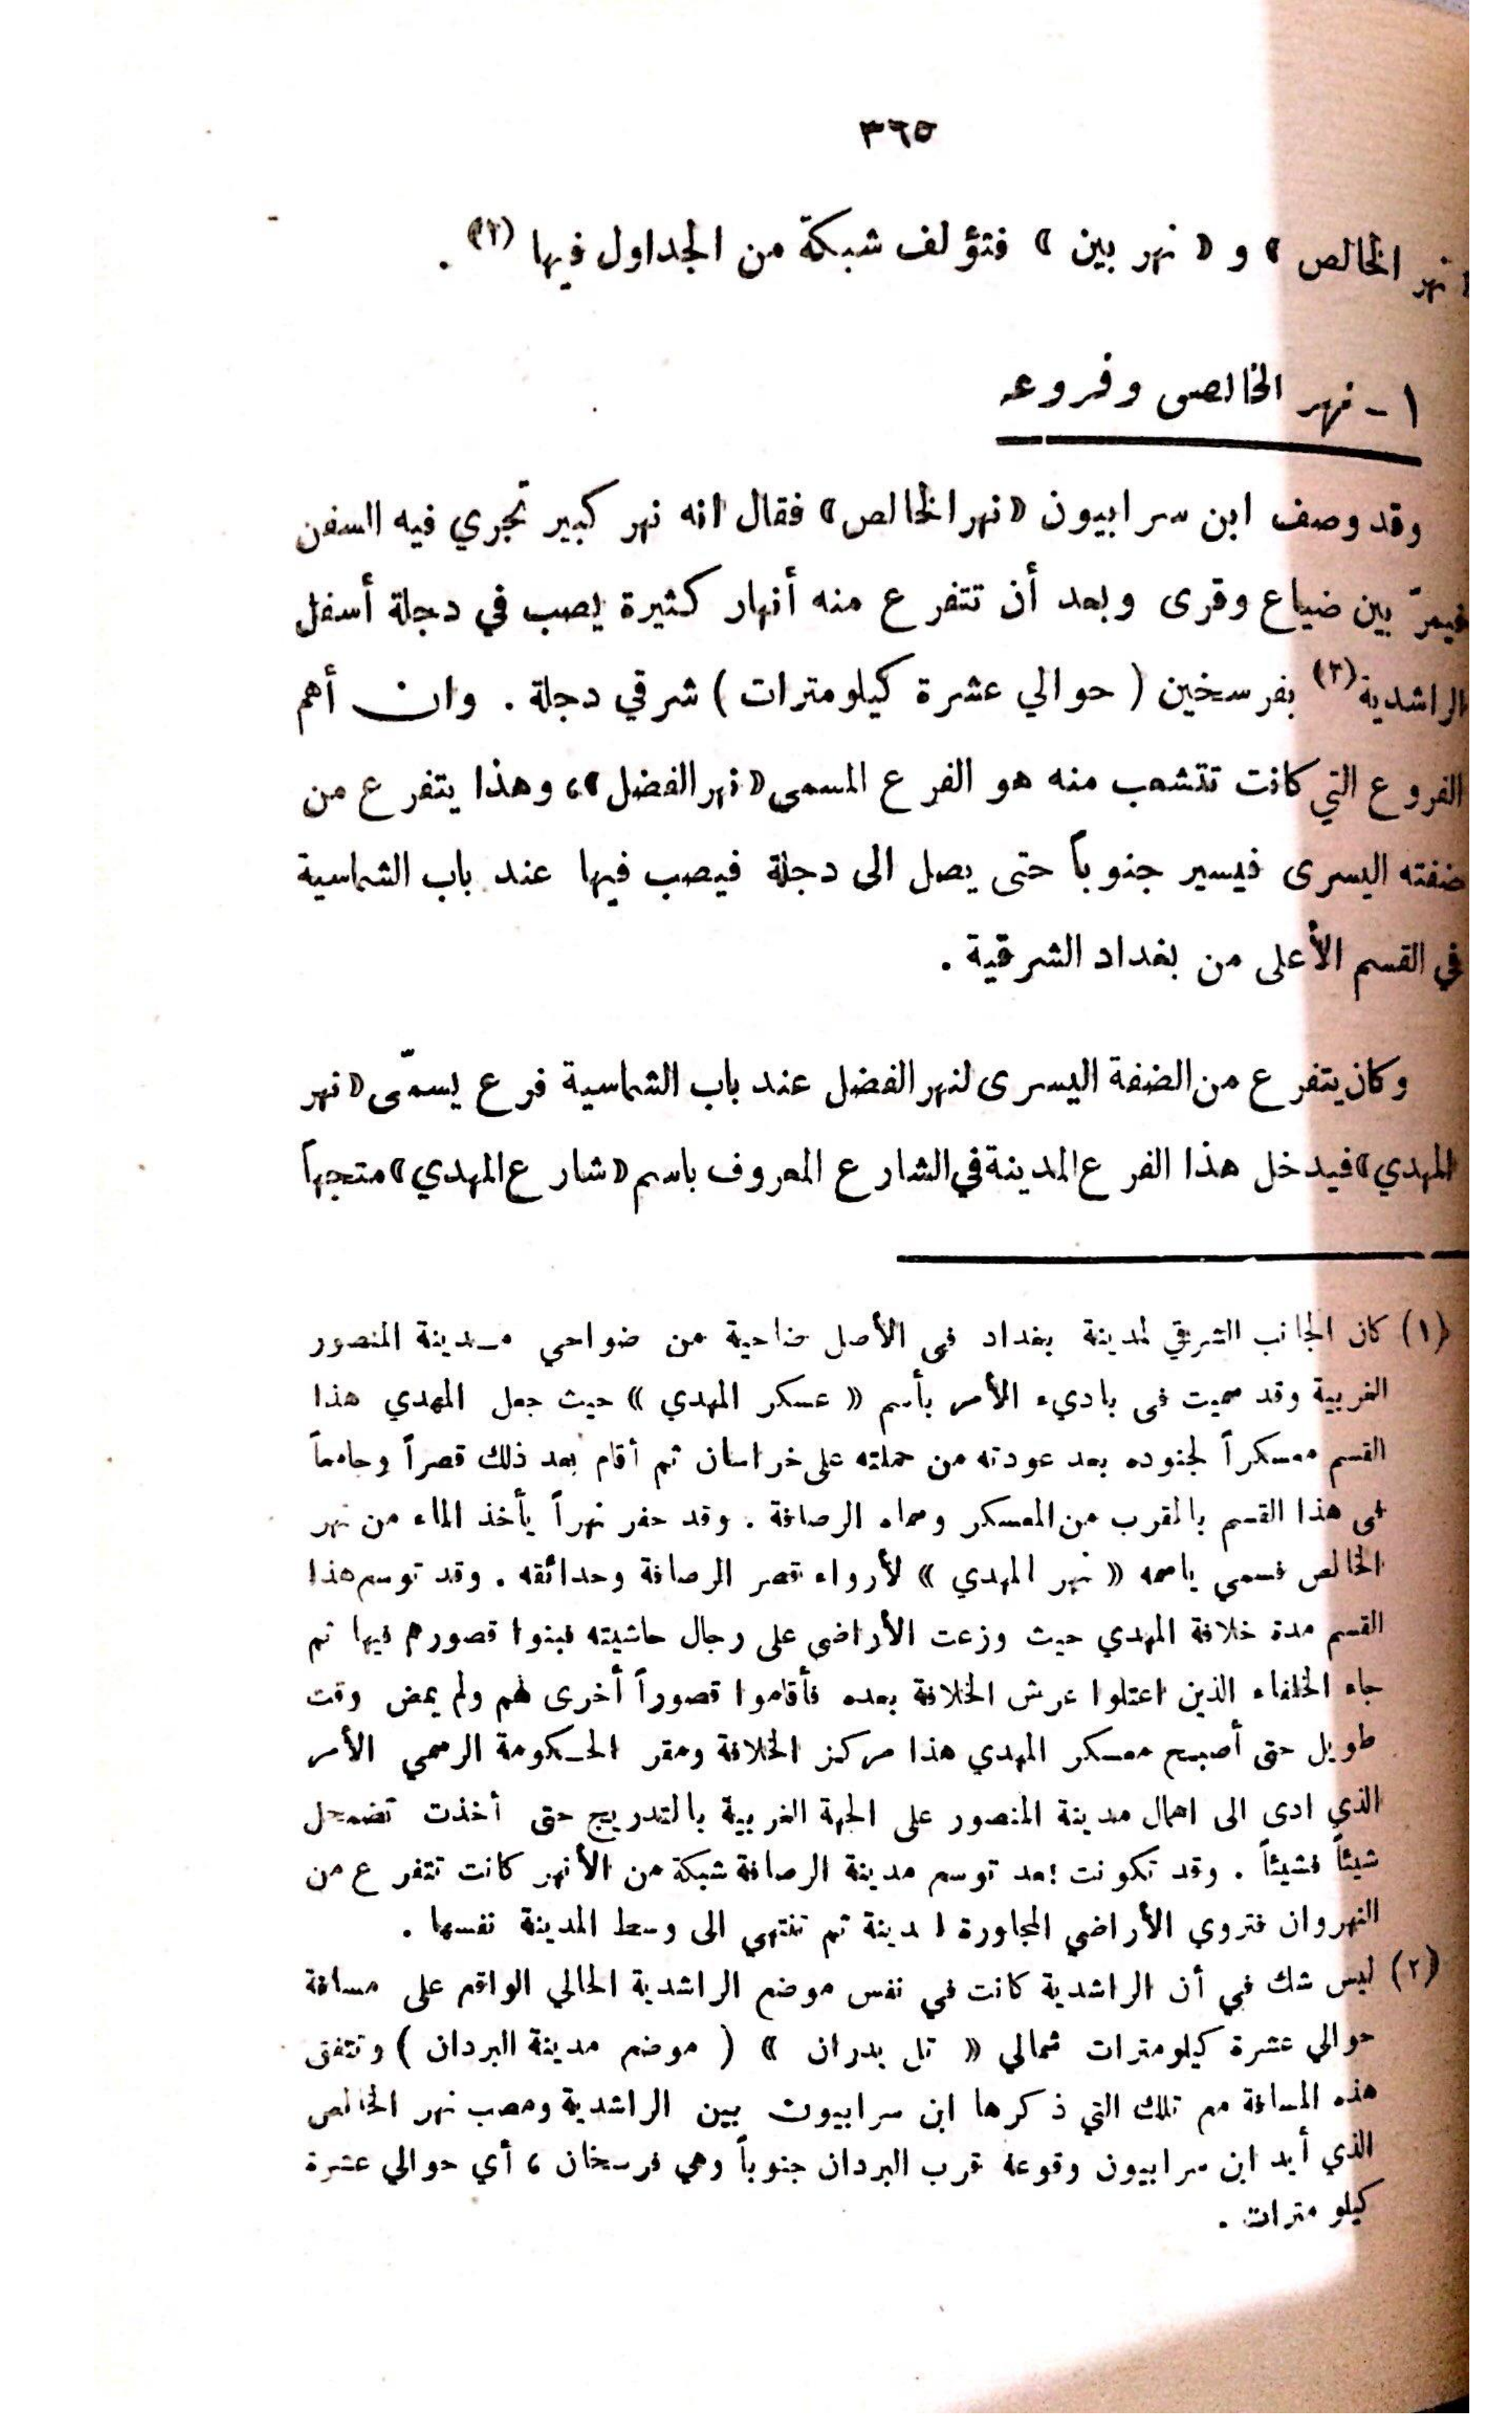 ٣٦٥
« نهر الخالص » و « نهر بين » فتؤلف شبكة من الجداول فيها (١) .
١ - نهر الخالص وفروعه
وقد وصف ابن سرابيون « نهر الخالص » فقال انه نهر كبير تجري فيه السفن
فيمرّ بين ضياع وقرى وبعد أن تتفرع منه أنهار كثيرة يصب في دجلة أسفل
الراشدية (٢) بفرسخين ( حوالي عشرة كيلومترات ) شرقي دجلة . وان أهم
الفروع التي كانت تتشعب منه هو الفرع المسمى « نهر الفضل » ، وهذا يتفرع من
ضفته اليسرى فيسير جنوباً حتى يصل الى دجلة فيصب فيها عند باب الشماسية
في القسم الأعلى من بغداد الشرقية .
وكان يتفرع من الضفة اليسرى لنهر الفضل عند باب الشماسية فرع يسمّى « نهر
المهدي » فيدخل هذا الفرع المدينة في الشارع المعروف باسم « شارع المهدي » متجهاً
(١) كان الجانب الشرقي لمدينة بغداد فى الأصل ضاحية من ضواحي مدينة المنصور
الغربية وقد سميت فى باديء الأمر بأسم « عسكر المهدي » حيث جعل المهدي هذا
القسم معسكراً لجنوده بعد عودته من حملته على خراسان ثم أقام بعد ذلك قصراً وجامعاً
فى هذا القسم بالمقرب من المعسكر وسماه الرصافة . وقد حفر نهراً يأخذ الماء من نهر
الخالص فسمي باسمه « نهر المهدي » لأرواء قصر الرصافة وحدائقه . وقد توسع هذا
القسم مدة خلافة المهدي حيث وزعت الأراضى على رجال حاشيته فبنوا قصورهم فيها ثم
جاء الخلفاء الذين اعتلوا عرش الخلافة بعده فأقاموا قصوراً أخرى لهم ولم يمض وقت
طويل حتى أصبح معسكر المهدي هذا مركز الخلافة ومقر الحكومة الرسمي الأمر
الذي ادى الى اهمال مدينة المنصور على الجهة الغربية بالتدريج حتى أخذت تضمحل
شيئاً فشيئاً . وقد تكونت بعد توسع مدينة الرصافة شبكة من الأنهر كانت تتفرع من
النهروان فتروي الأراضي المجاورة لمدينة ثم تنتهي الى وسط المدينة نفسها .
(٢) ليس شك في أن الراشدية كانت في نفس موضع الراشدية الحالي الواقع على مسافة
حوالي عشرة كيلومترات شمالي « تل بدران » ( موضع مدينة البردان ) وتتفق
هذه المسافة مع تلك التي ذكرها ابن سرابيون بين الراشدية ومصب نهر الخالص
الذي أيد ابن سرابيون وقوعه قرب البردان جنوباً وهي فرسخان ، أي حوالي عشرة
كيلو مترات .